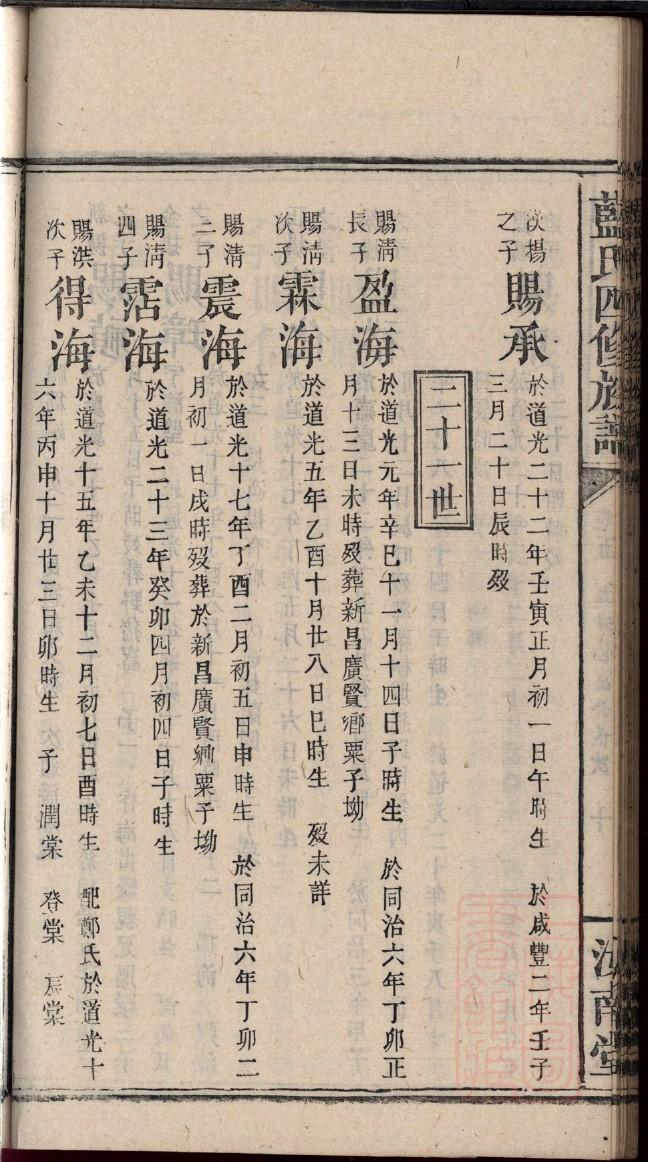 藍氏四修族譜
汝南堂
次楊之子 賜承 於道光二十二年壬寅正月初一日午時生 於咸豐二年壬子
三月二十日辰時殁
二十一世
賜清長子 盈海 於道光元年辛巳十一月十四日子時生 於同治六年丁卯正
月十三日未時殁葬新昌廣賢鄉粟子坳
賜清次子 霖海 於道光五年乙酉十月廿八日巳時生 殁未詳
賜清三子 震海 於道光十七年丁酉二月初五日申時生 於同治六年丁卯二
月初一日戌時殁葬於新昌廣賢鄉粟子坳
賜清四子 霑海 於道光二十三年癸卯四月初四日子時生
賜洪次子 得海 於道光十五年乙未十二月初七日酉時生 配鄭氏於道光十
六年丙申十月廿三日卯時生 子 潤棠 登棠 宸棠